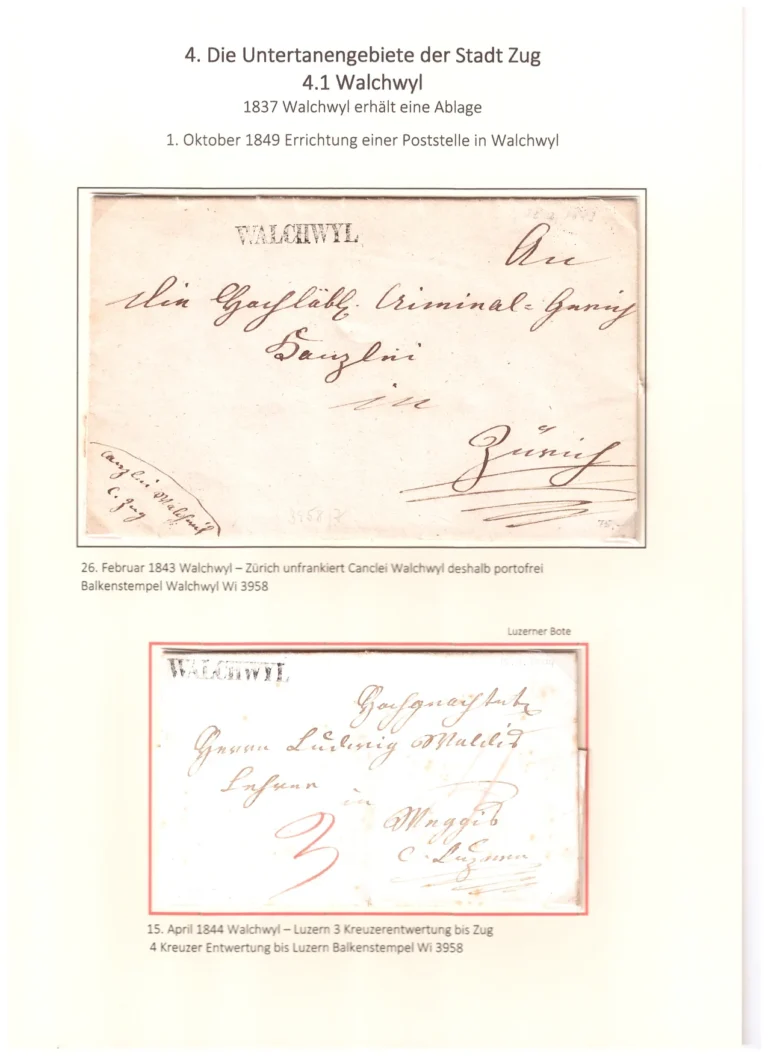 4. Die Untertanengebiete der Stadt Zug
4.1 Walchwyl
1837 Walchwyl erhält eine Ablage
1. Oktober 1849 Errichtung einer Poststelle in Walchwyl
WALCHWYL
An
die Hochlöbl. Criminal=Gerich
Kanzlei
in
Zürich
Canzlei Walchwil
C. Zug
3958/2
75.-
26. Februar 1843 Walchwyl – Zürich unfrankiert Canclei Walchwyl deshalb portofrei
Balkenstempel Walchwyl Wi 3958
Luzerner Bote
WALCHWYL
Hochgeachteter
Herrn Ludwig Waldis
Lehrer
in
Weggis
C. Luzern
3
15. April 1844 Walchwyl – Luzern 3 Kreuzerentwertung bis Zug
4 Kreuzer Entwertung bis Luzern Balkenstempel Wi 3958